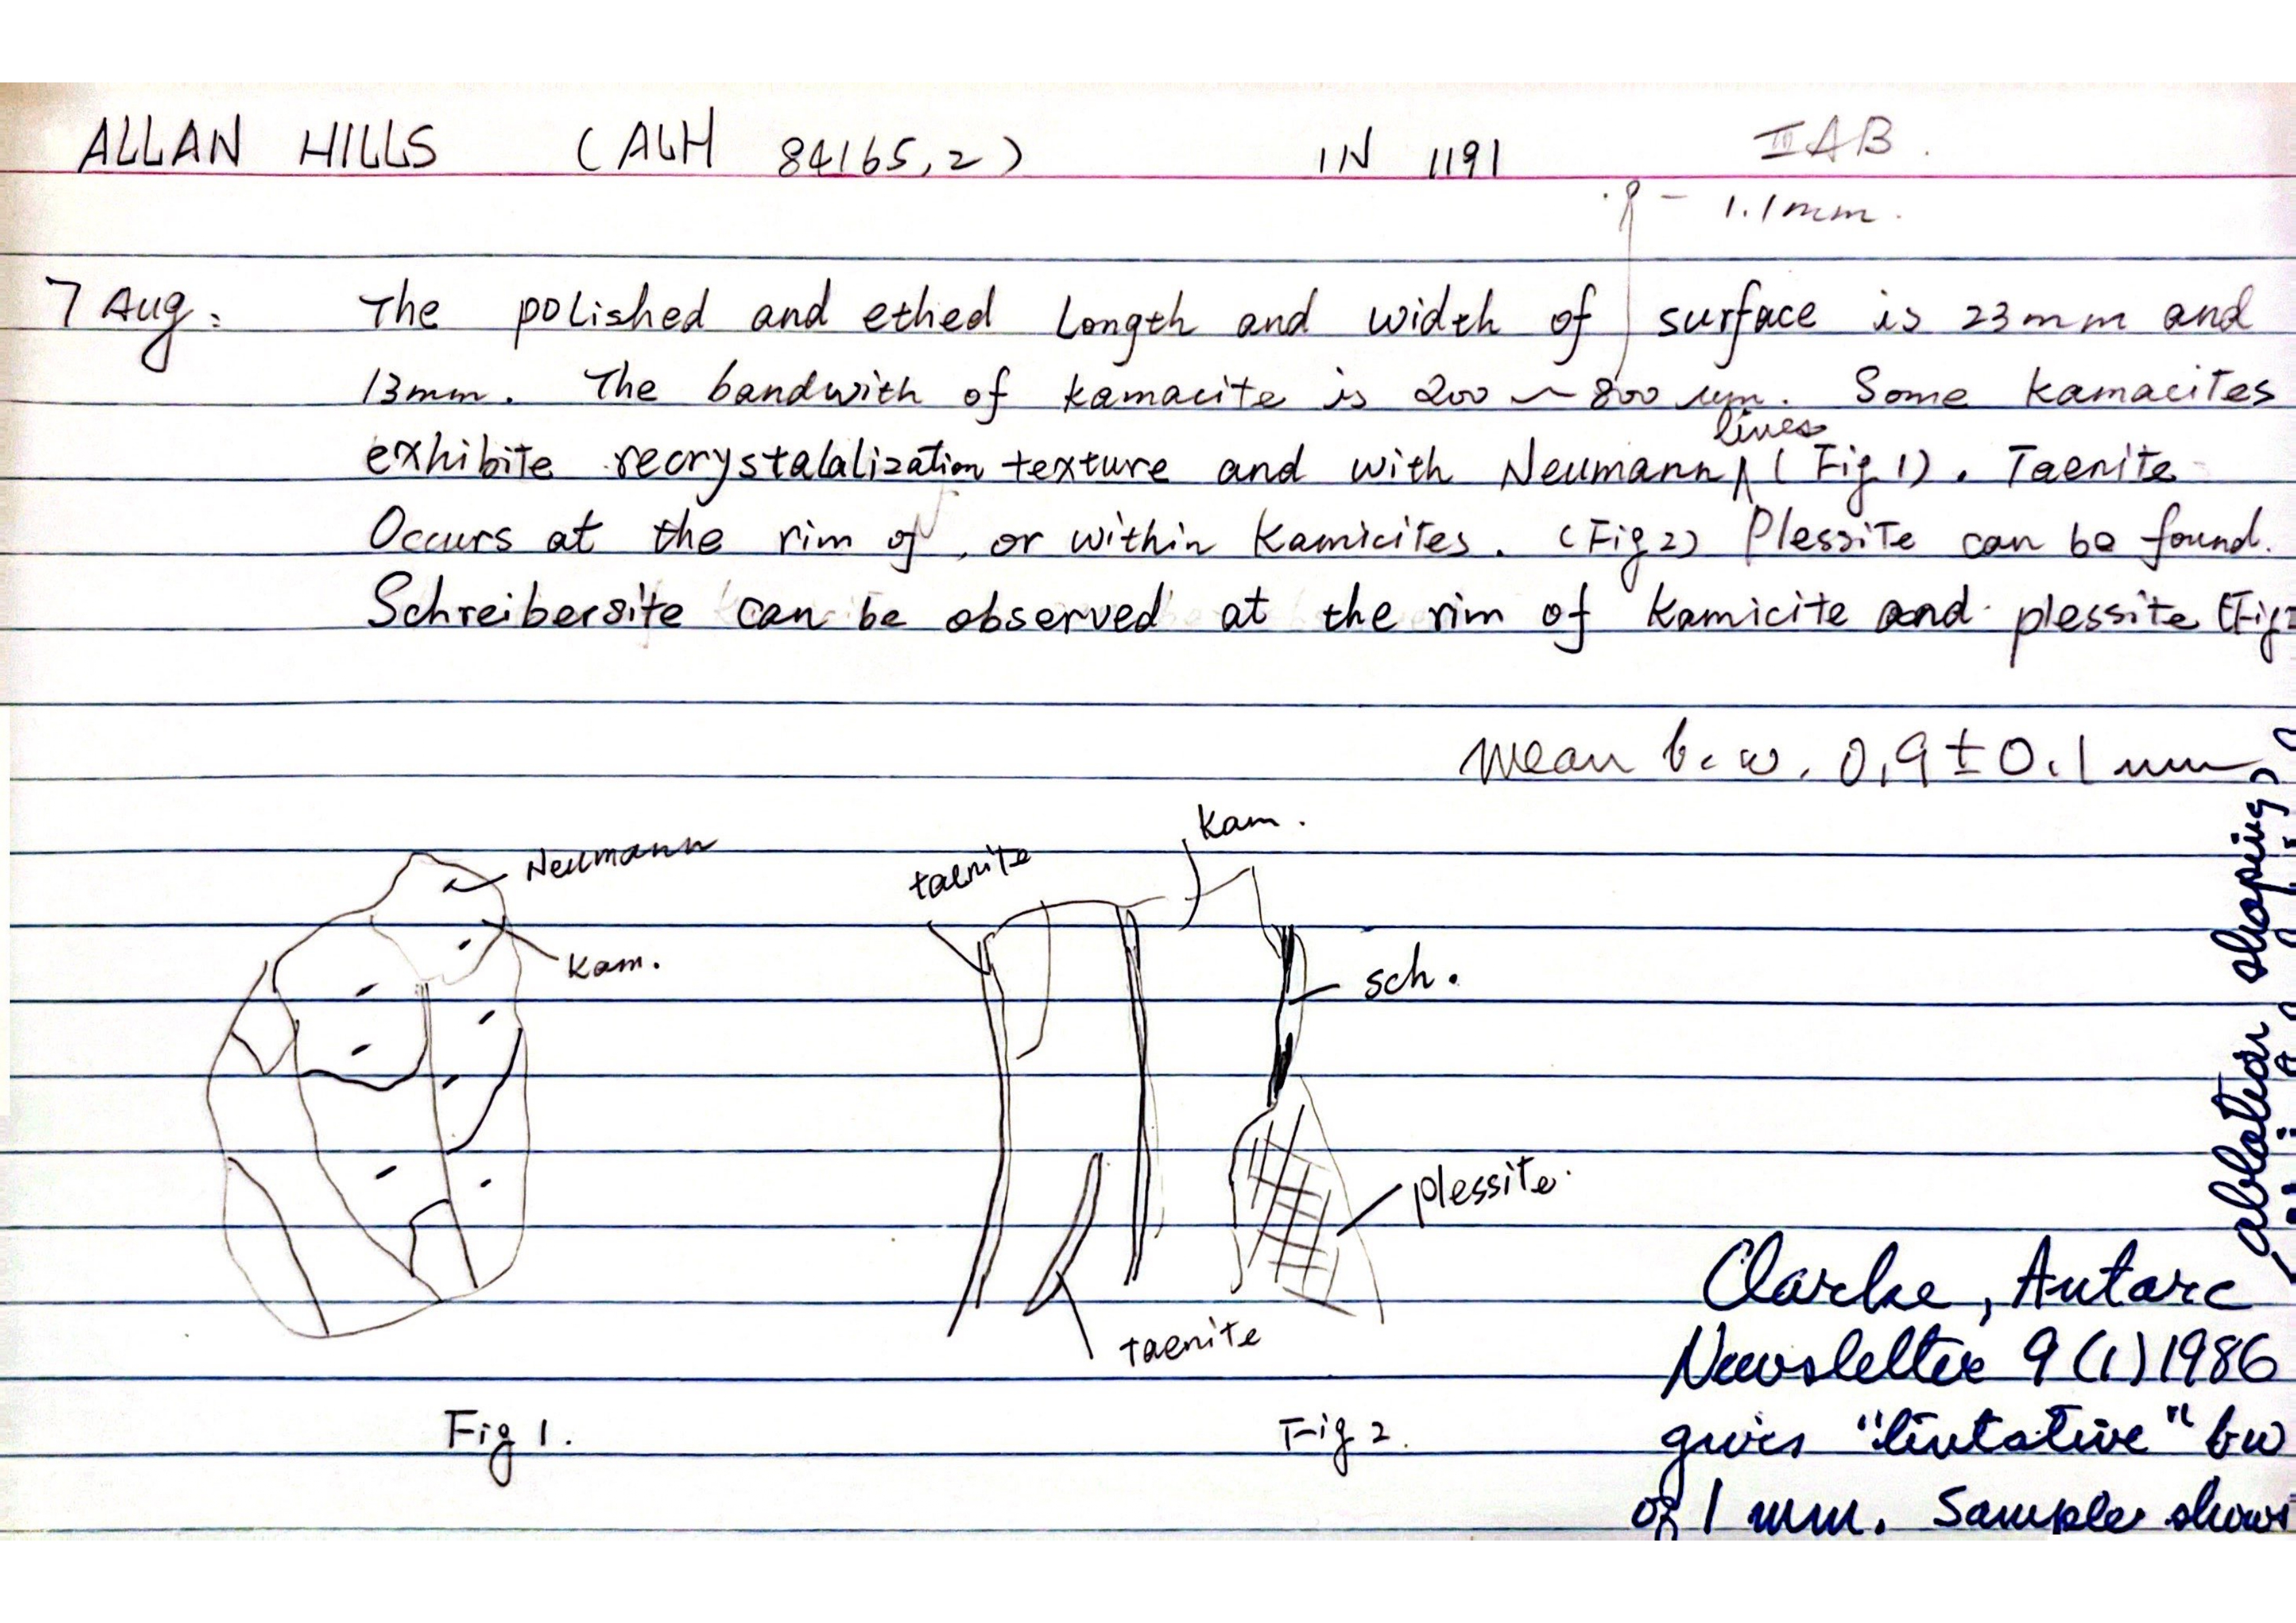 ALLAN HILLS (ALH 84165,2) IN 1191 IIIAB.
- 1.1mm.
7 Aug: The polished and ethed Length and width of surface is 23mm and
13mm. The bandwith of kamacite is 200 ~ 800 um. Some kamacites
exhibite recrystalalization texture and with Neumann lines (Fig 1). Taenite
Occurs at the rim of, or within Kamicites. (Fig 2) Plessite can be found.
Schreibersite can be observed at the rim of kamicite and plessite (Fig2
mean b.w. 0.9 ± 0.1 mm
Neumann
Kam.
Fig 1.
taenite
Kam.
sch.
plessite.
taenite
Fig 2.
Clarke, Antarc
Newsletter 9(1)1986
gives "tentative" bw
of 1 mm. Sample shows
ablation shaping,